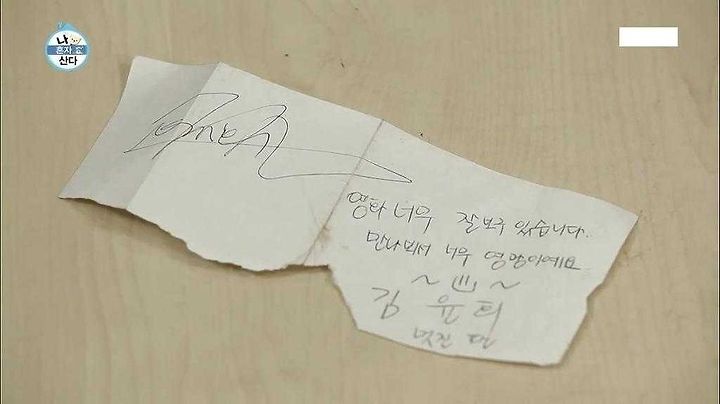 나
혼자
산다
영화 너무 잘보구 있습니다.
만나뵈서 너무 영광이에요
김 윤
멋진